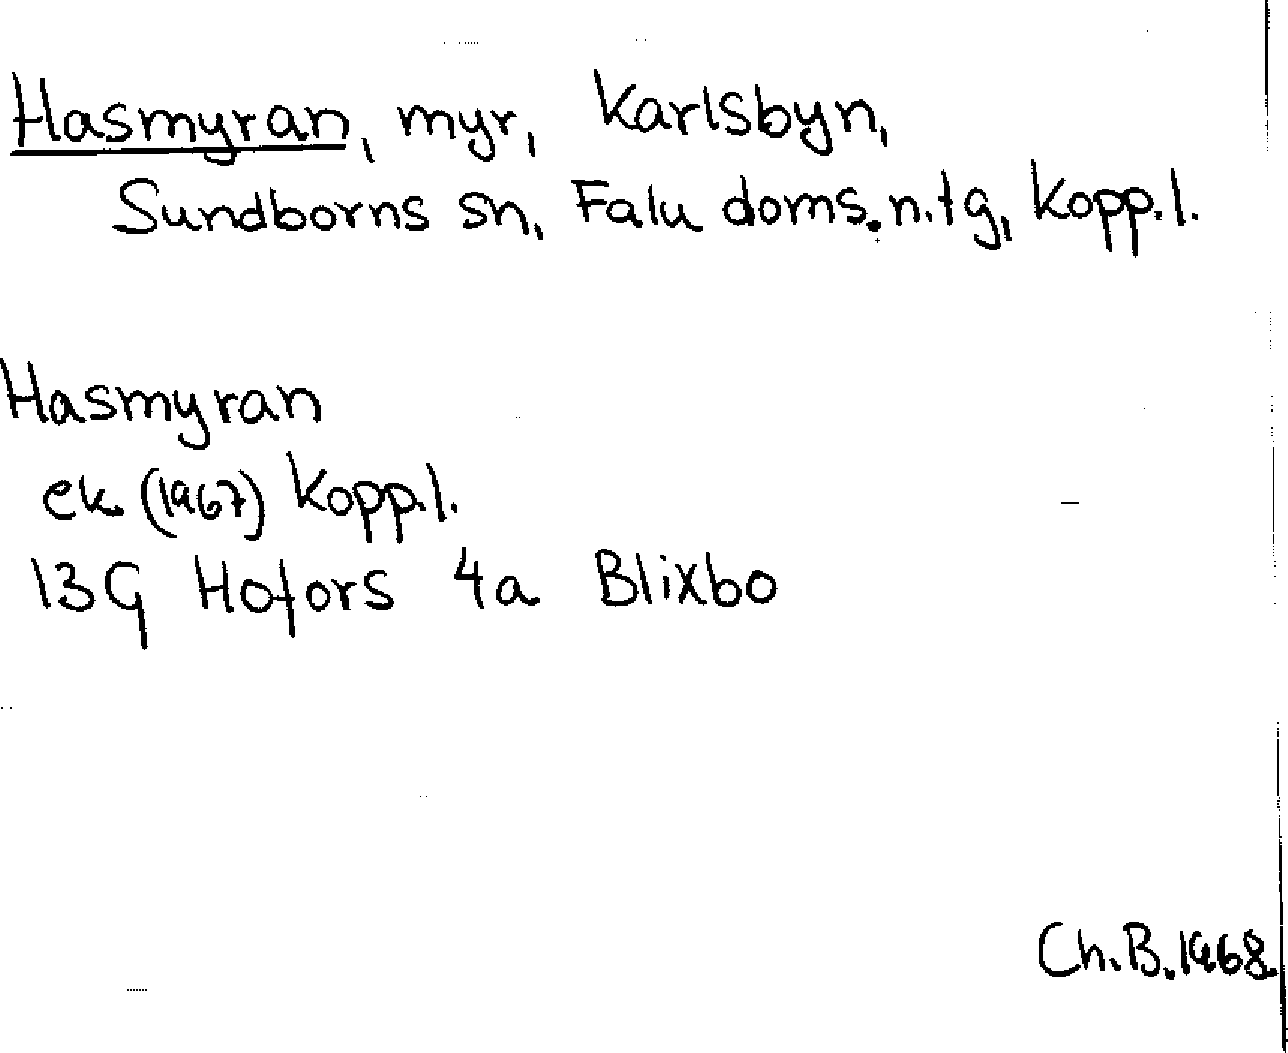 Hasmyran, myr, Karlsbyn,
Sundborns sn, Falu doms.n.tg, Kopp.l.
Hasmyran
ek. (1967) Kopp.l.
13G Hofors 4a Blixbo
Ch.B.1968.